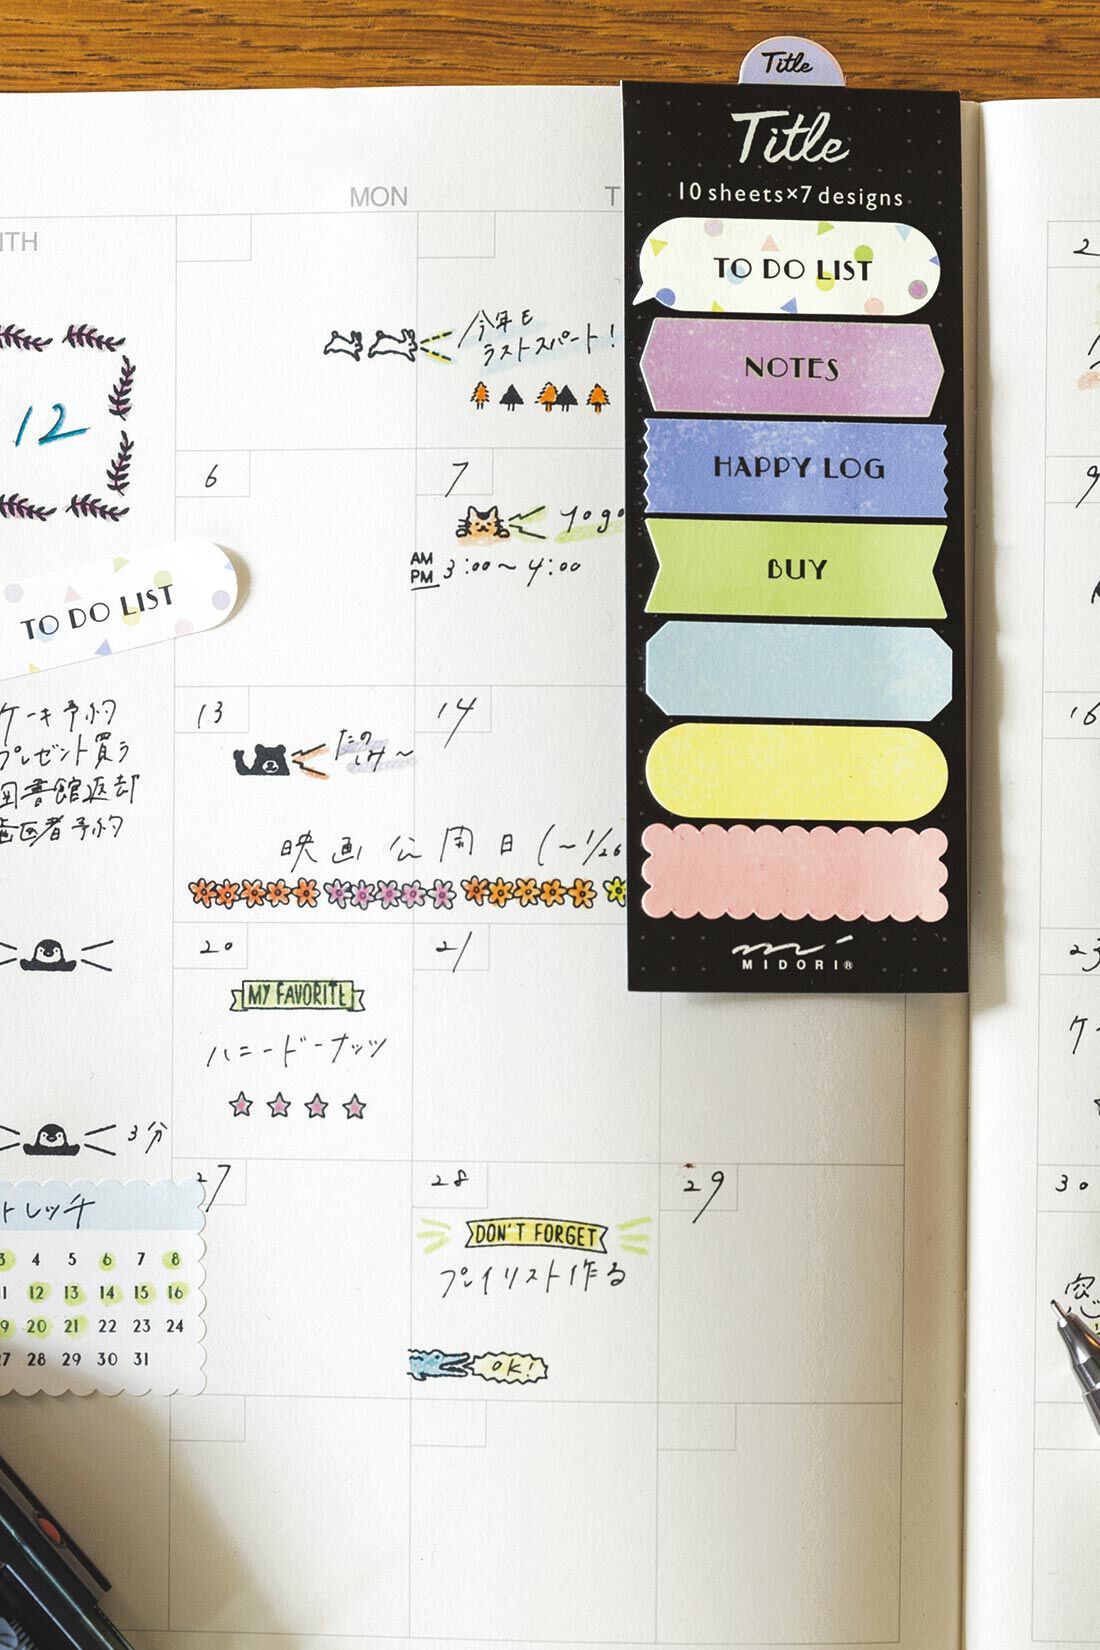 Title
Title
10 sheets×7 designs
MON
T
TH
TO DO LIST
NOTES
HAPPY LOG
BUY
MIDORI®
12
今年も
ラストスパート!
6
7
yoga
AM
PM
3:00〜4:00
TO DO LIST
ケーキ予約
プレゼント買う
図書館返却
歯医者予約
13
たの
しみ〜
14
映画公開日(〜1/26
20
MY FAVORITE
ハニードーナッツ
21
3分
トレッチ
3 4 5 6 7 8
11 12 13 14 15 16
19 20 21 22 23 24
27 28 29 30 31
27
28
DON'T FORGET
プレイリスト作る
OK!
29
2
9
16
23
ケー
30
窓